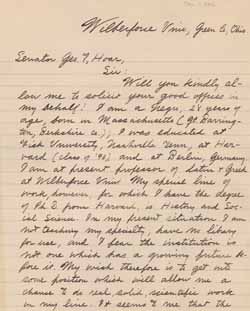 Wilberforce Univ., Green Co, Ohio
Senator Geo. F. Hoar,
Sir:
Will you kindly al-
low me to solicit your good offices in
my behalf? I am a Negro, 28 years
of age, born in Massachusetts (Gt. Barring-
ton, Berkshire Co.), I was educated at
Fisk University, Nashville Tenn., at Har-
vard (class of '90) and at Berlin, Germany.
I am at present professor of Latin & Greek
at Wilberforce Univ. My special line of
work, however, for which I have the degree
of Ph.D. from Harvard, is History and So-
cial Science. In my present situation I am
not teaching my specialty, have no library
for use, and I fear the institution is
not one which has a growing future be-
fore it. My wish therefore is to get into
some position which will allow me a
chance to do real solid scientific work
in my line. It seems to me that the